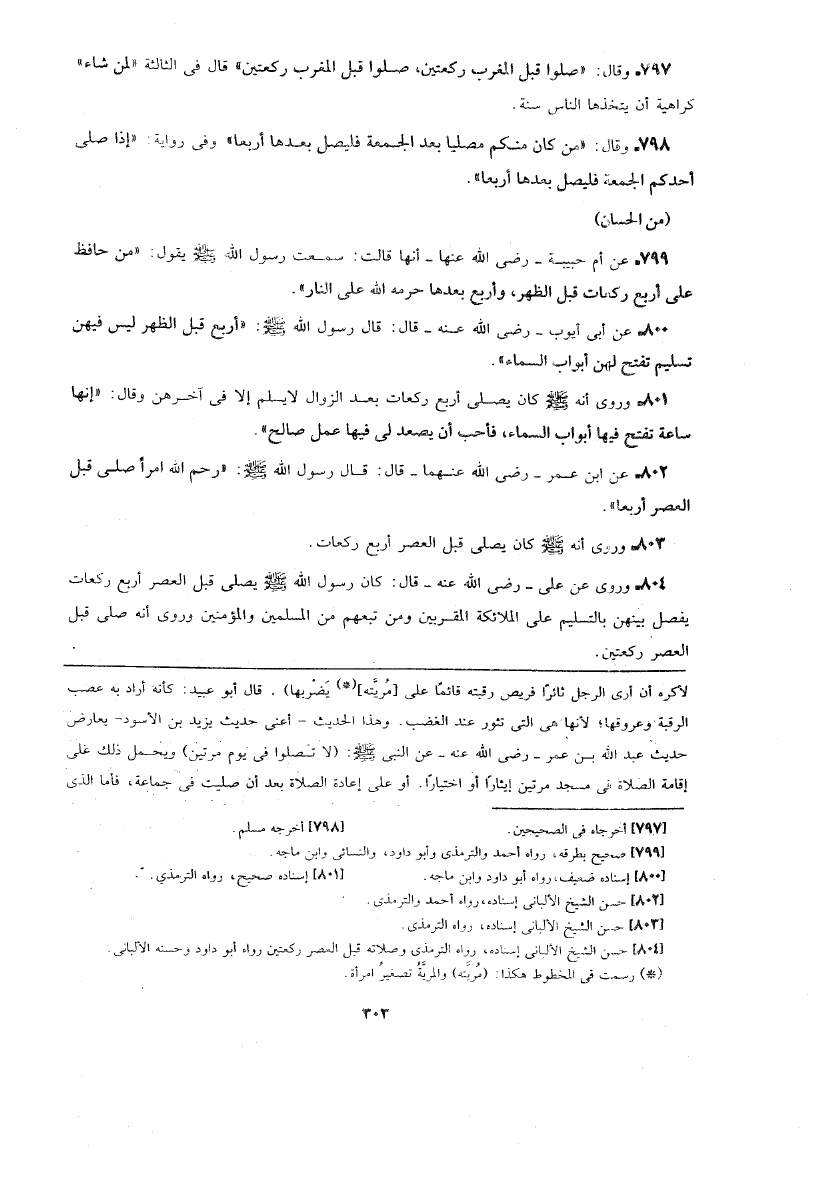 ٧٩٧ـ وقال: «صلوا قبل المغرب ركعتين، صلوا قبل المغرب ركعتين» قال فى الثالثة «لمن شاء»
كراهية أن يتخذها الناس سنة.
٧٩٨ـ وقال: «من كان منكم مصليا بعد الجمعة فليصل بعدها أربعا» وفى رواية: «إذا صلى
أحدكم الجمعة فليصل بعدها أربعا».
(من الحسان)
٧٩٩ـ عن أم حبيبة ـ رضى الله عنها ـ أنها قالت: سمعت رسول الله ﷺ يقول: «من حافظ
على أربع ركعات قبل الظهر، وأربع بعدها حرمه الله على النار».
٨٠٠ـ عن أبى أيوب ـ رضى الله عنه ـ قال: قال رسول الله ﷺ: «أربع قبل الظهر ليس فيهن
تسليم تفتح لهن أبواب السماء».
٨٠١ـ وروى أنه ﷺ كان يصلى أربع ركعات بعد الزوال لايسلم إلا فى آخرهن وقال: «إنها
ساعة تفتح فيها أبواب السماء، فأحب أن يصعد لى فيها عمل صالح».
٨٠٢ـ عن ابن عمر ـ رضى الله عنهما ـ قال: قال رسول الله ﷺ: «رحم الله امرأ صلى قبل
العصر أربعا».
٨٠٣ـ وروى أنه ﷺ كان يصلى قبل العصر أربع ركعات.
٨٠٤ـ وروى عن على ـ رضى الله عنه ـ قال: كان رسول الله ﷺ يصلى قبل العصر أربع ركعات
يفصل بينهن بالتسليم على الملائكة المقربين ومن تبعهم من المسلمين والمؤمنين وروى أنه صلى قبل
العصر ركعتين.
لأكره أن أرى الرجل ثائرًا فريص رقبته قائمًا على [مُريَّته](*) يَضْربها) . قال أبو عبيد: كأنه أراد به عصب
الرقبة وعروقها؛ لأنها هى التى تثور عند الغضب. وهذا الحديث - أعنى حديث يزيد بن الأسود- يعارض
حديث عبد الله بن عمر ـ رضى الله عنه ـ عن النبى ﷺ: (لا تصلوا فى يوم مرتين) ويحمل ذلك على
إقامة الصلاة فى مسجد مرتين إيثارًا أو اختيارًا. أو على إعادة الصلاة بعد أن صليت فى جماعة، فأما الذى
[٧٩٧] أخرجاه فى الصحيحين. [٧٩٨] أخرجه مسلم.
[٧٩٩] صحيح بطرقه، رواه أحمد والترمذى وأبو داود، والنسائى وابن ماجه.
[٨٠٠] إسناده ضعيف، رواه أبو داود وابن ماجه. [٨٠١] إسناده صحيح، رواه الترمذي.
[٨٠٢] حسن الشيخ الألبانى إسناده، رواه أحمد والترمذى.
[٨٠٣] حسن الشيخ الألبانى إسناده، رواه الترمذى.
[٨٠٤] حسن الشيخ الألبانى إسناده، رواه الترمذى وصلاته قبل العصر ركعتين رواه أبو داود وحسنه الألبانى.
(*) رسمت فى المخطوط هكذا: (مُريَّته) والمريَّةُ تصغيرُ امرأة.
٣٠٣